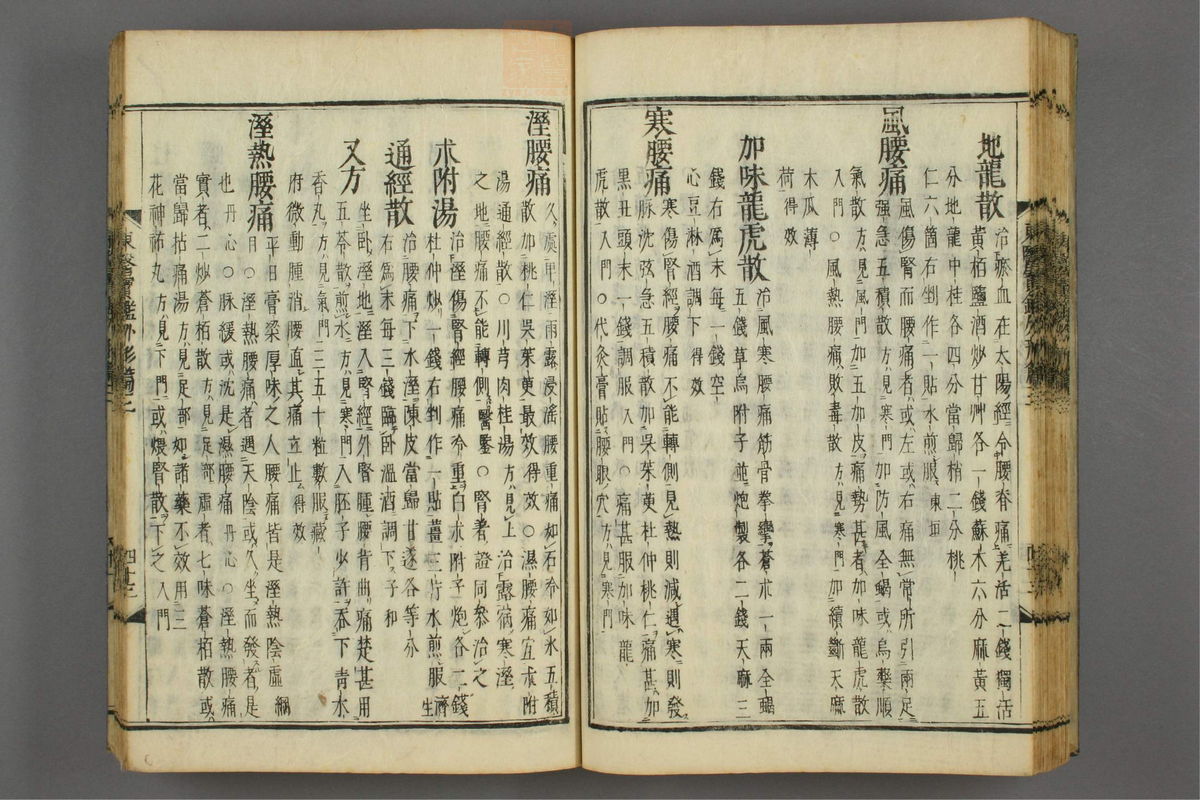 地龍散
治瘀血在太陽經令腰脊痛羌活二錢獨活
黃栢鹽酒炒甘艸各一錢蘇木六分麻黃五
分地龍中桂各四分當歸梢二分桃
仁六箇右剉作一貼水煎服東垣
風腰痛
風傷腎而腰痛者或左或右痛無常所引兩足
强急五積散方見寒門加防風全蝎或烏藥順
氣散方見風門加五加皮痛勢甚者加味龍虎散
入門○風熱腰痛敗毒散方見寒門加續斷天麻
木瓜薄
荷得效
加味龍虎散
治風寒腰痛筋骨拳攣蒼朮一兩全蝎
五錢草烏附子並炮製各二錢天麻三
錢右爲末每一錢空
心豆淋酒調下得效
寒腰痛
寒傷腎經腰痛不能轉側見熱則減遇寒則發
脉沈弦急五積散加吳茱萸杜仲桃仁痛甚加
黑丑頭末一錢調服入門○痛甚服加味龍
虎散入門○代灸膏貼腰眼穴方見寒門
溼腰痛
久處卑溼雨露浸淫腰重痛如石冷如氷五積
散加桃仁吳茱萸最效得效○濕腰痛宜朮附
湯通經散○川芎肉桂湯方見上治露宿寒溼
之地腰痛不能轉側醫鑒○腎著證同參治之
朮附湯
治溼傷腎經腰痛冷重白朮附子炮各二錢
杜仲炒一錢右剉作一貼薑三片水煎服濟生
通經散
治腰痛下水溼陳皮當歸甘遂各等分
右爲末每三錢臨臥溫酒調下子和
又方
坐臥溼地溼入腎經外腎腫腰背曲痛楚甚用
五苓散煎水方見寒門入胚子少許吞下靑水
香丸方見氣門三五十粒數服藏
府微動腫消腰直其痛立止得效
溼熱腰痛
平日膏粱厚味之人腰痛皆是溼熱陰虛綱
目○溼熱腰痛者遇天陰或久坐而發者是
也丹心○脉緩或沈是濕腰痛丹心○溼熱腰痛
實者二炒蒼栢散方見足部虛者七味蒼栢散或
當歸拈痛湯方見足部如諸藥不效用三
花神祐丸方見下門或煨腎散下之入門
東醫寶鑑外形篇三
四十三